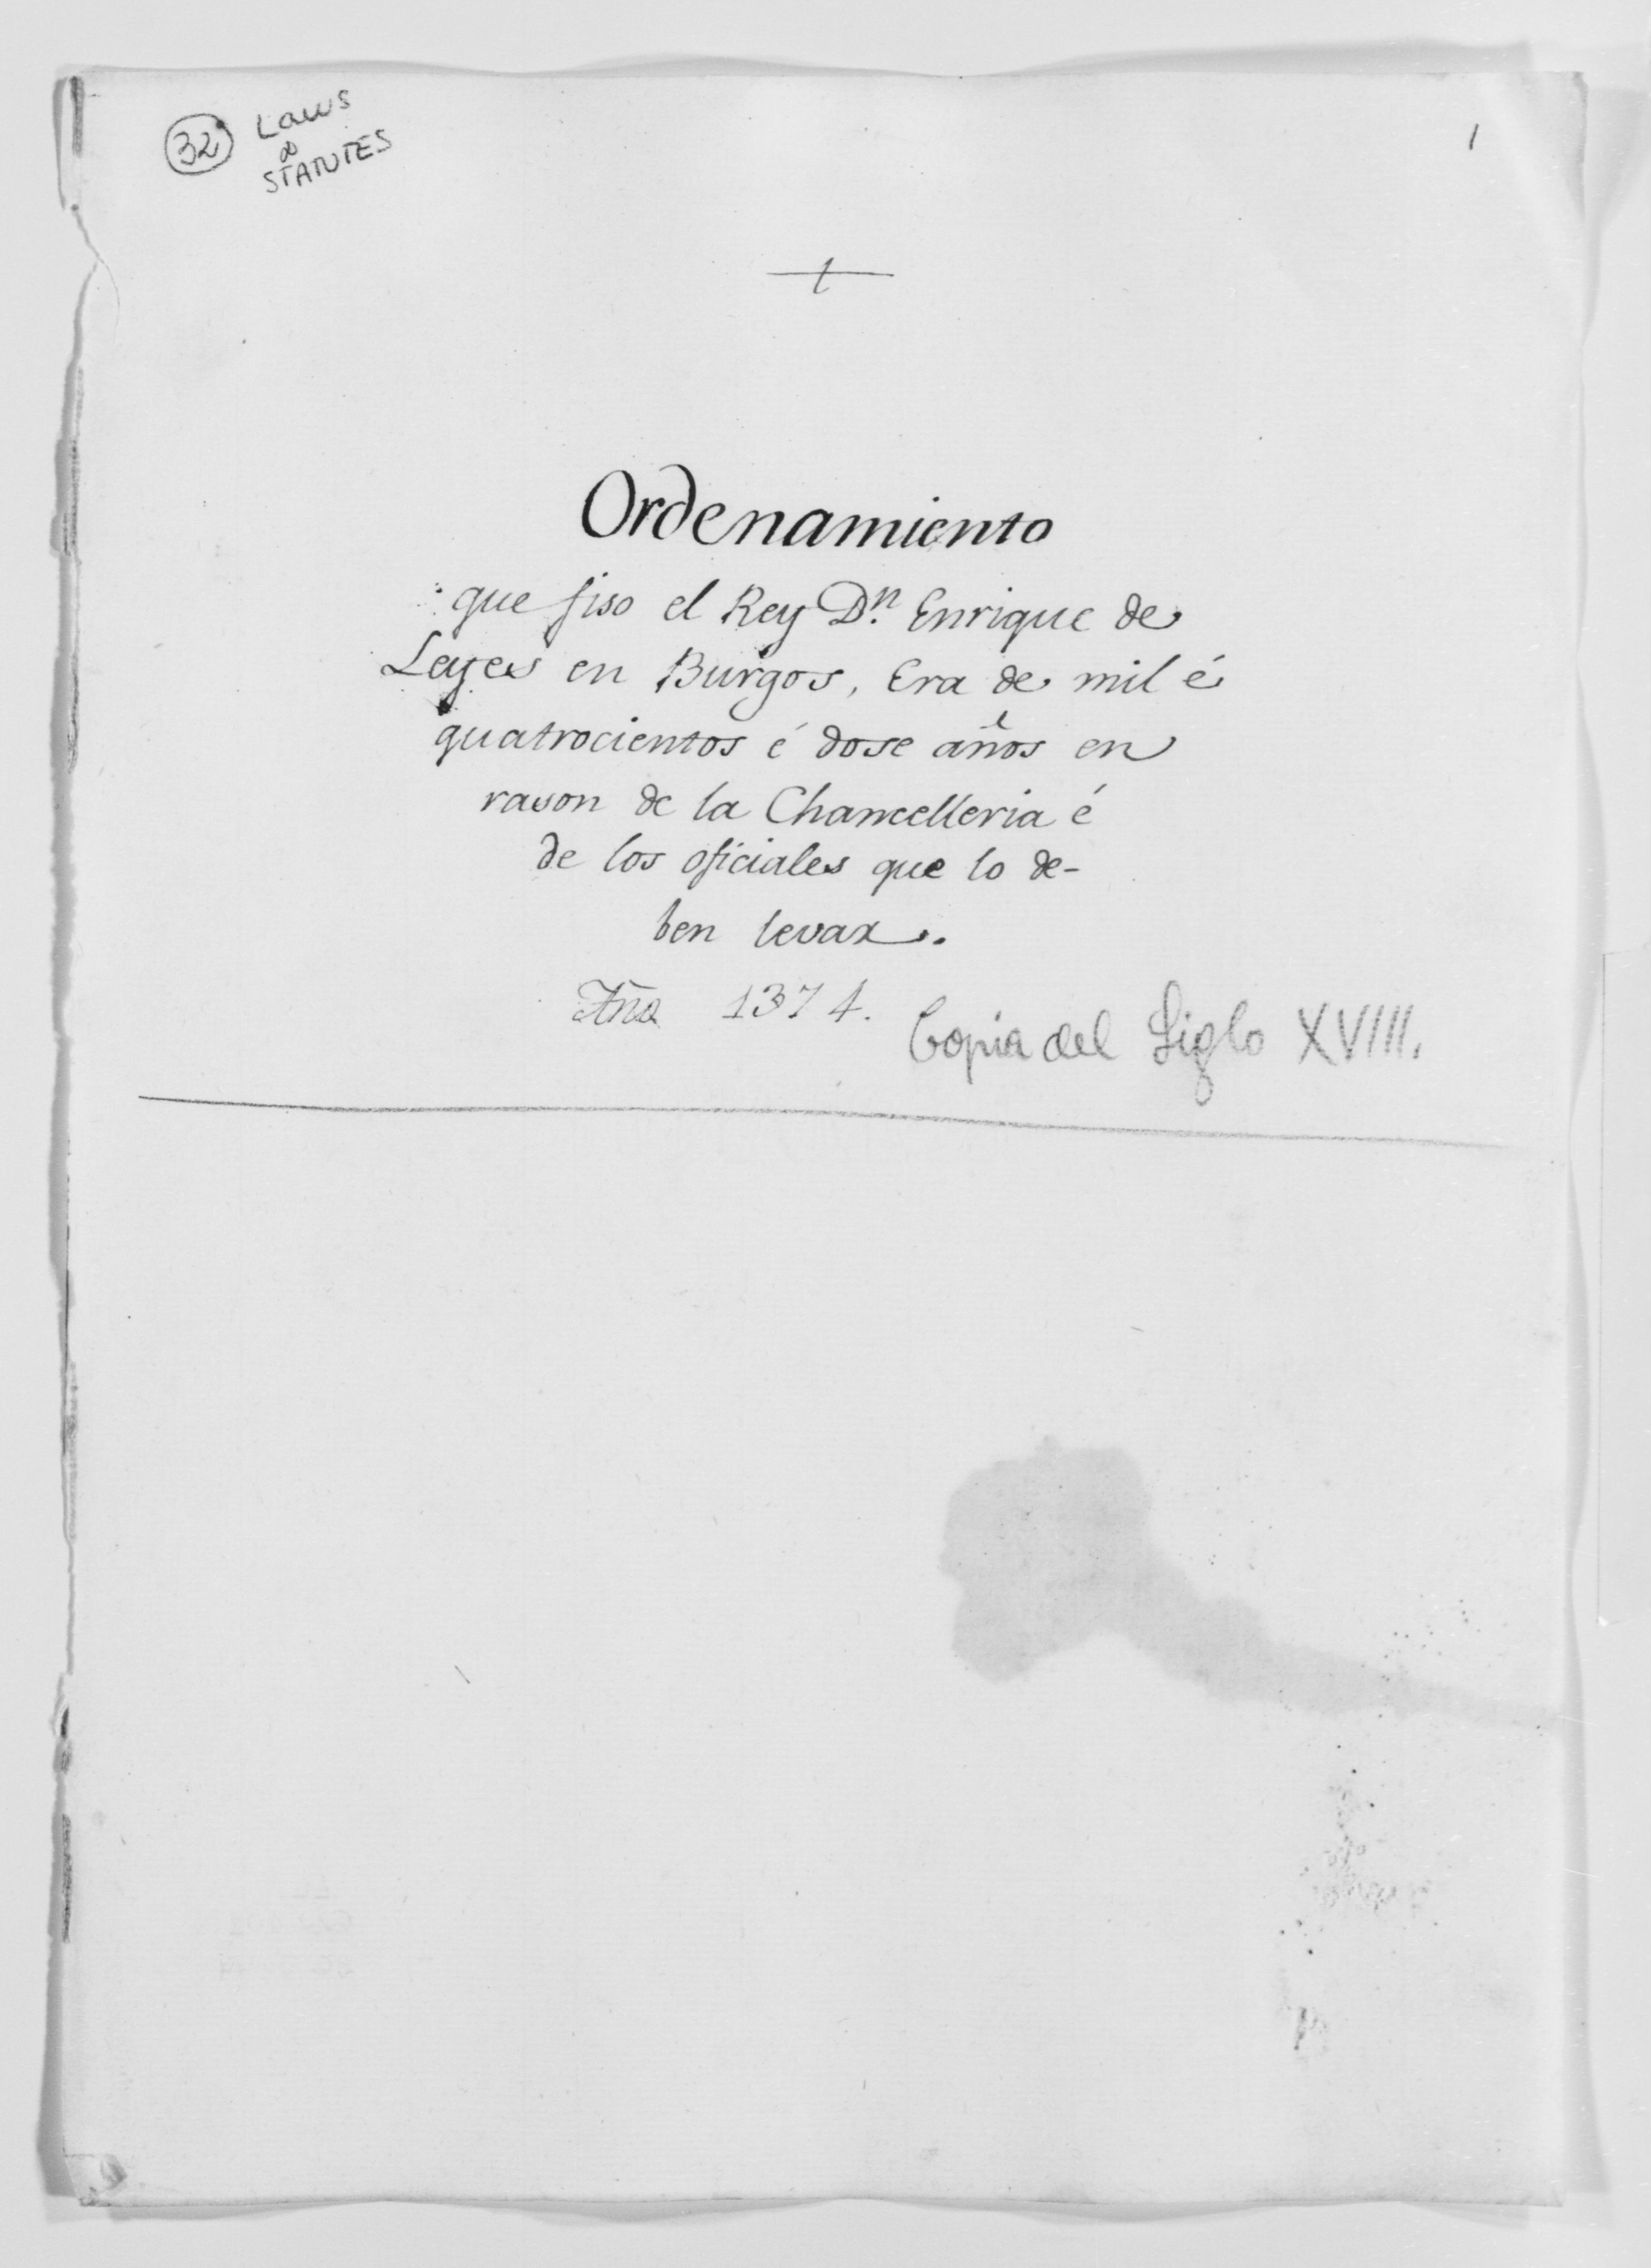 32
Laws
&
STATUTES
1
Ordenamiento
que fiso el Rey Dn. Enrique de
Leyes en Burgos, Era de mil é
quatrocientos é dose años en
rason de la Chancelleria é
de los oficiales que lo de-
ben levar.
Año 1374.
Copia del Siglo XVIII.